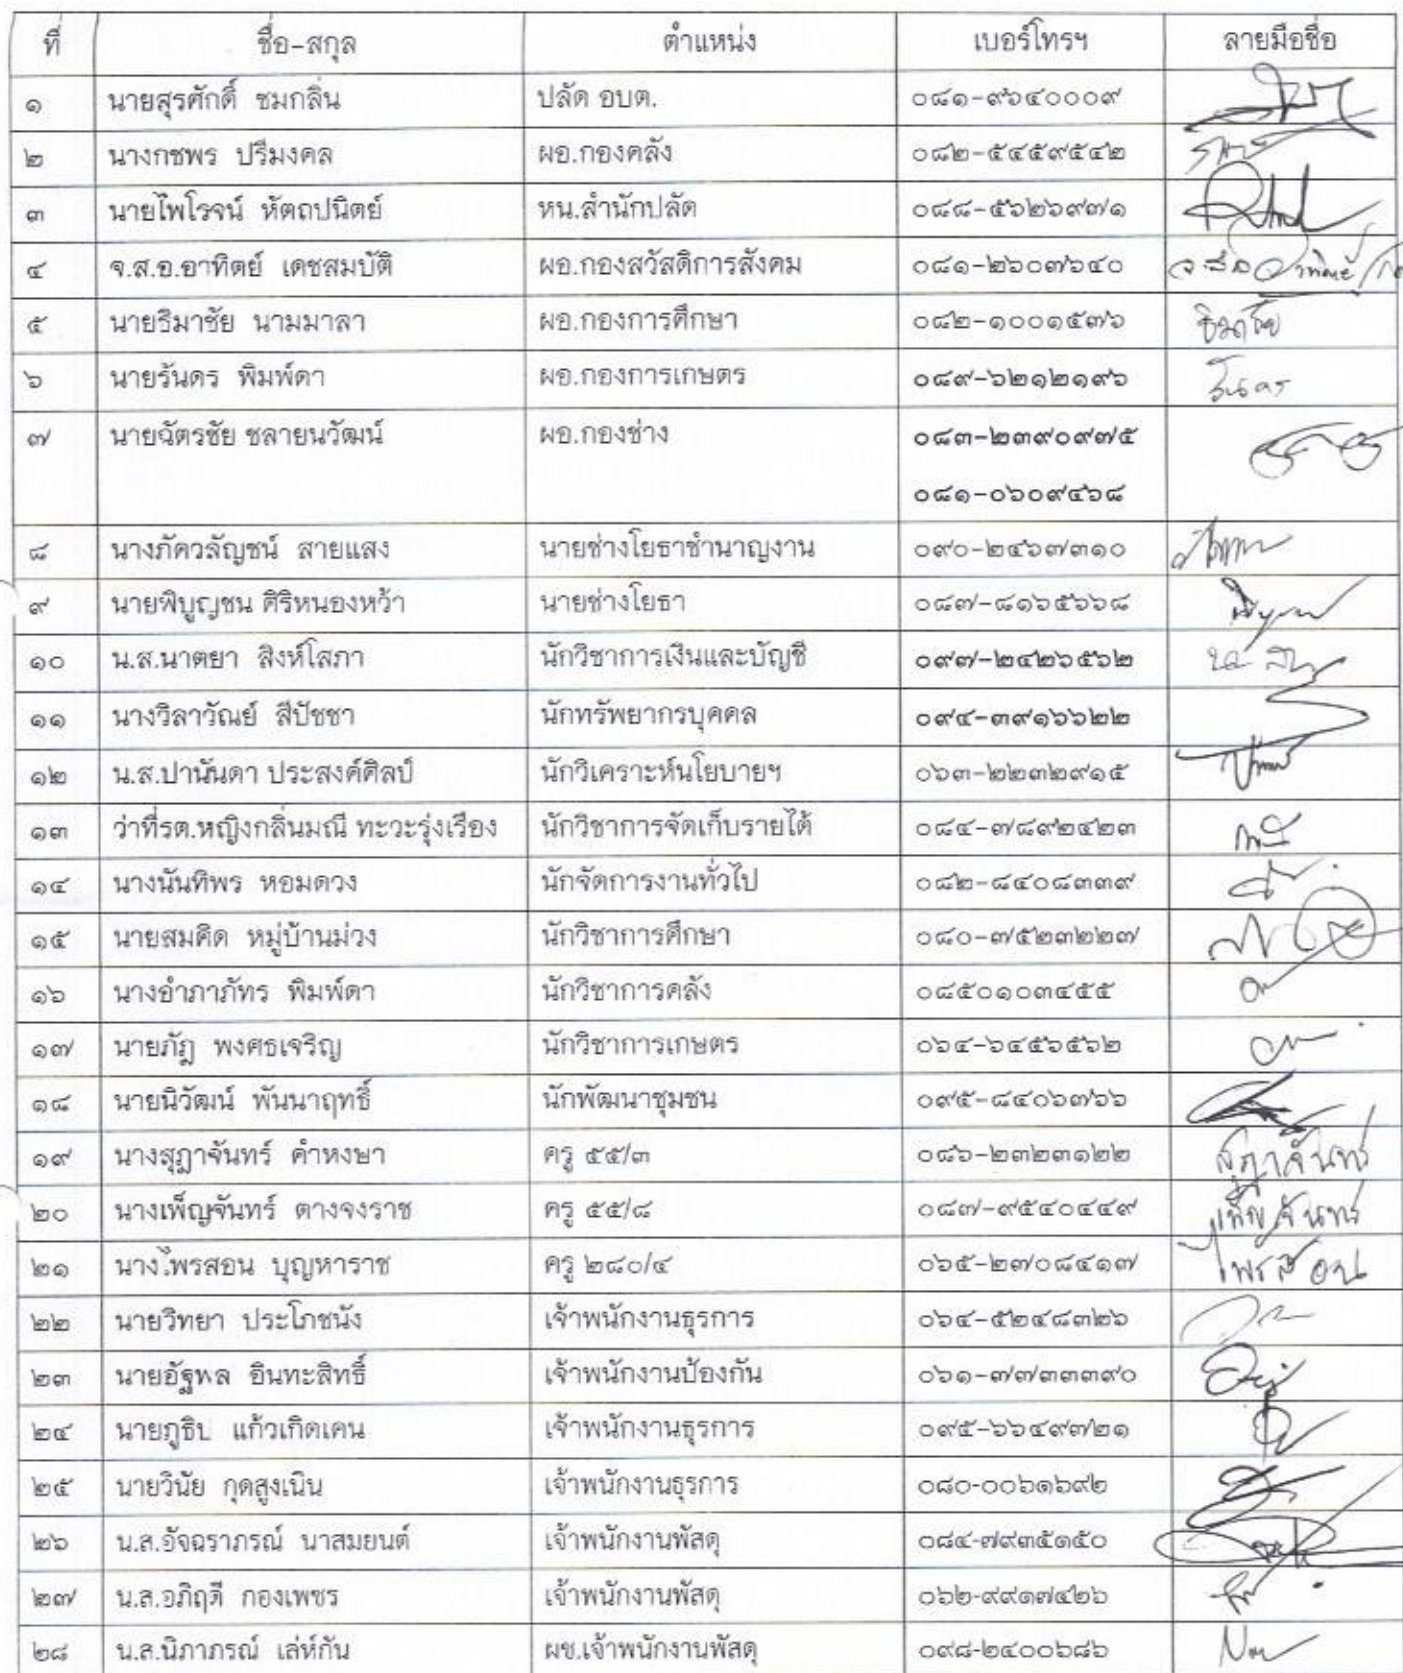 ที่ ชื่อ-สกุล ตำแหน่ง เบอร์โทรฯ ลายมือชื่อ
๑ นายสุรศักดิ์ ชมกลิ่น ปลัด อบต. ๐๘๑-๙๖๔๐๐๐๙
๒ นางกชพร ปรีมงคล ผอ.กองคลัง ๐๘๒-๕๔๕๙๕๔๒
๓ นายไพโรจน์ หัตถปนิตย์ หน.สำนักปลัด ๐๘๘-๕๖๒๖๙๗๑
๔ จ.ส.อ.อาทิตย์ เดชสมบัติ ผอ.กองสวัสดิการสังคม ๐๘๑-๒๖๐๗๖๔๐
๕ นายธิมาชัย นามมาลา ผอ.กองการศึกษา ๐๘๒-๑๐๐๑๕๗๖ ธิมาชัย
๖ นายรันดร พิมพ์ดา ผอ.กองการเกษตร ๐๘๙-๖๒๑๒๑๙๖ รันดร
๗ นายฉัตรชัย ชลายนวัฒน์ ผอ.กองช่าง ๐๘๓-๒๓๙๐๙๗๕
๐๘๑-๐๖๐๙๔๖๘
๘ นางภัควลัญชน์ สายแสง นายช่างโยธาชำนาญงาน ๐๙๐-๒๔๖๗๓๑๐
๙ นายพิบูญชน ศิริหนองหว้า นายช่างโยธา ๐๘๗-๘๑๖๕๖๖๘
๑๐ น.ส.นาตยา สิงห์โสภา นักวิชาการเงินและบัญชี ๐๙๗-๒๔๒๖๕๖๒
๑๑ นางวิลาวัณย์ สีปัชชา นักทรัพยากรบุคคล ๐๙๔-๓๙๑๖๖๒๒
๑๒ น.ส.ปานันดา ประสงค์ศิลป์ นักวิเคราะห์นโยบายฯ ๐๖๓-๒๒๓๒๙๑๕
๑๓ ว่าที่รต.หญิงกลิ่นมณี ทะวะรุ่งเรือง นักวิชาการจัดเก็บรายได้ ๐๘๔-๗๘๙๒๔๒๓
๑๔ นางนันทิพร หอมดวง นักจัดการงานทั่วไป ๐๘๒-๘๔๐๘๓๓๙
๑๕ นายสมคิด หมู่บ้านม่วง นักวิชาการศึกษา ๐๘๐-๗๕๒๓๒๒๗
๑๖ นางอำภาภัทร พิมพ์ดา นักวิชาการคลัง ๐๘๕๐๑๐๓๔๕๕
๑๗ นายภัฎ พงศธเจริญ นักวิชาการเกษตร ๐๖๔-๖๔๕๖๕๖๒
๑๘ นายนิวัฒน์ พันนาฤทธิ์ นักพัฒนาชุมชน ๐๙๕-๘๔๐๖๗๖๖
๑๙ นางสุฎาจันทร์ คำหงษา ครู ๕๕/๓ ๐๘๖-๒๓๒๓๑๒๒ สุฎาจันทร์
๒๐ นางเพ็ญจันทร์ ตางจงราช ครู ๕๕/๘ ๐๘๗-๙๕๔๐๔๔๙ เพ็ญจันทร์
๒๑ นางไพรสอน บุญหาราช ครู ๒๘๐/๔ ๐๖๕-๒๗๐๘๔๑๗ ไพรสอน
๒๒ นายวิทยา ประโภชนัง เจ้าพนักงานธุรการ ๐๖๔-๕๒๔๘๓๒๖
๒๓ นายอัฐพล อินทะสิทธิ์ เจ้าพนักงานป้องกัน ๐๖๑-๗๗๓๓๓๙๐
๒๔ นายภูธิป แก้วเกิดเคน เจ้าพนักงานธุรการ ๐๙๕-๖๖๔๙๗๒๑
๒๕ นายวินัย กุดสูงเนิน เจ้าพนักงานธุรการ ๐๘๐-๐๐๖๑๖๙๒
๒๖ น.ส.อัจฉราภรณ์ นาสมยนต์ เจ้าพนักงานพัสดุ ๐๘๔-๗๙๓๕๑๕๐
๒๗ น.ส.อภิฤดี กองเพชร เจ้าพนักงานพัสดุ ๐๖๒-๙๙๑๗๔๒๖
๒๘ น.ส.นิภาภรณ์ เล่ห์กัน ผช.เจ้าพนักงานพัสดุ ๐๙๘-๒๔๐๐๖๘๖